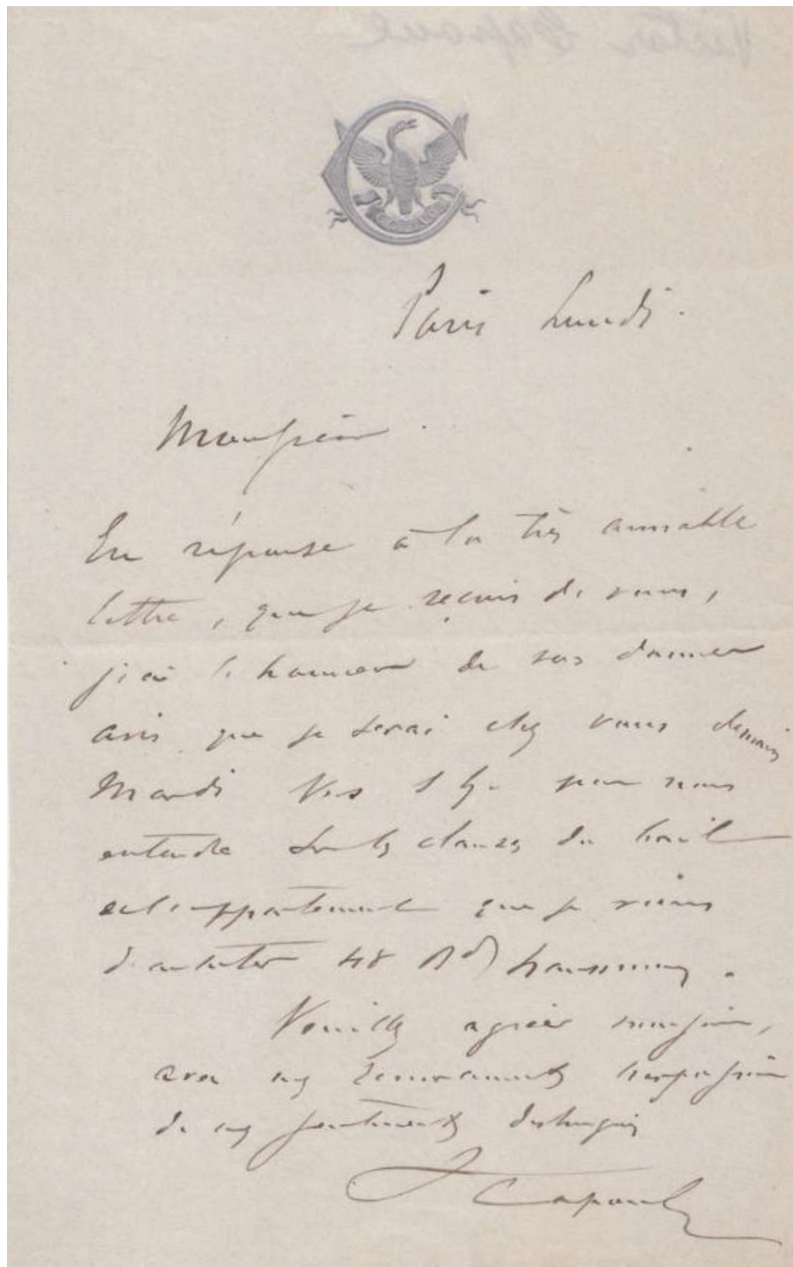 Paris Lundi.
Monsieur.
En réponse à la très aimable
lettre, que je reçois de vous,
j'ai l'honneur de vous donner
avis que je serai chez vous demain
Mardi vers pour nous
entendre sur les clauses du bail
de l'appartement que je viens
d'arrêter 48 Bd haussmann.
Veuillez agréer monsieur,
avec mes remerciements l'expression
de mes sentiments distingués
V Capoul